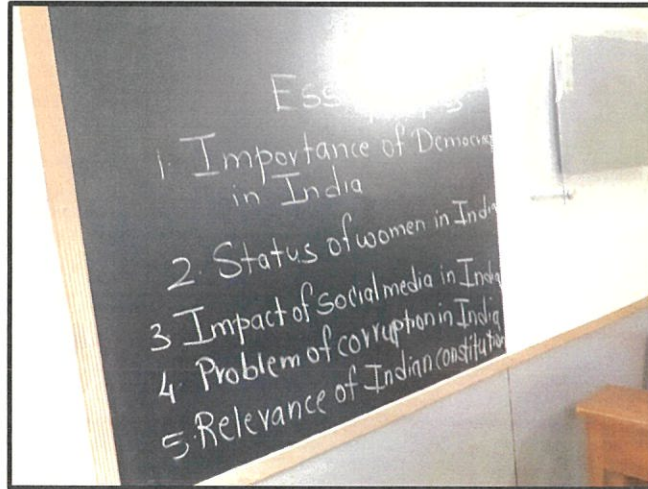 1. Importance of
in India
2. Status of women in
3 Impact of social media in India
4. Problem of corruption in India
5. Relevance of Indian constitution